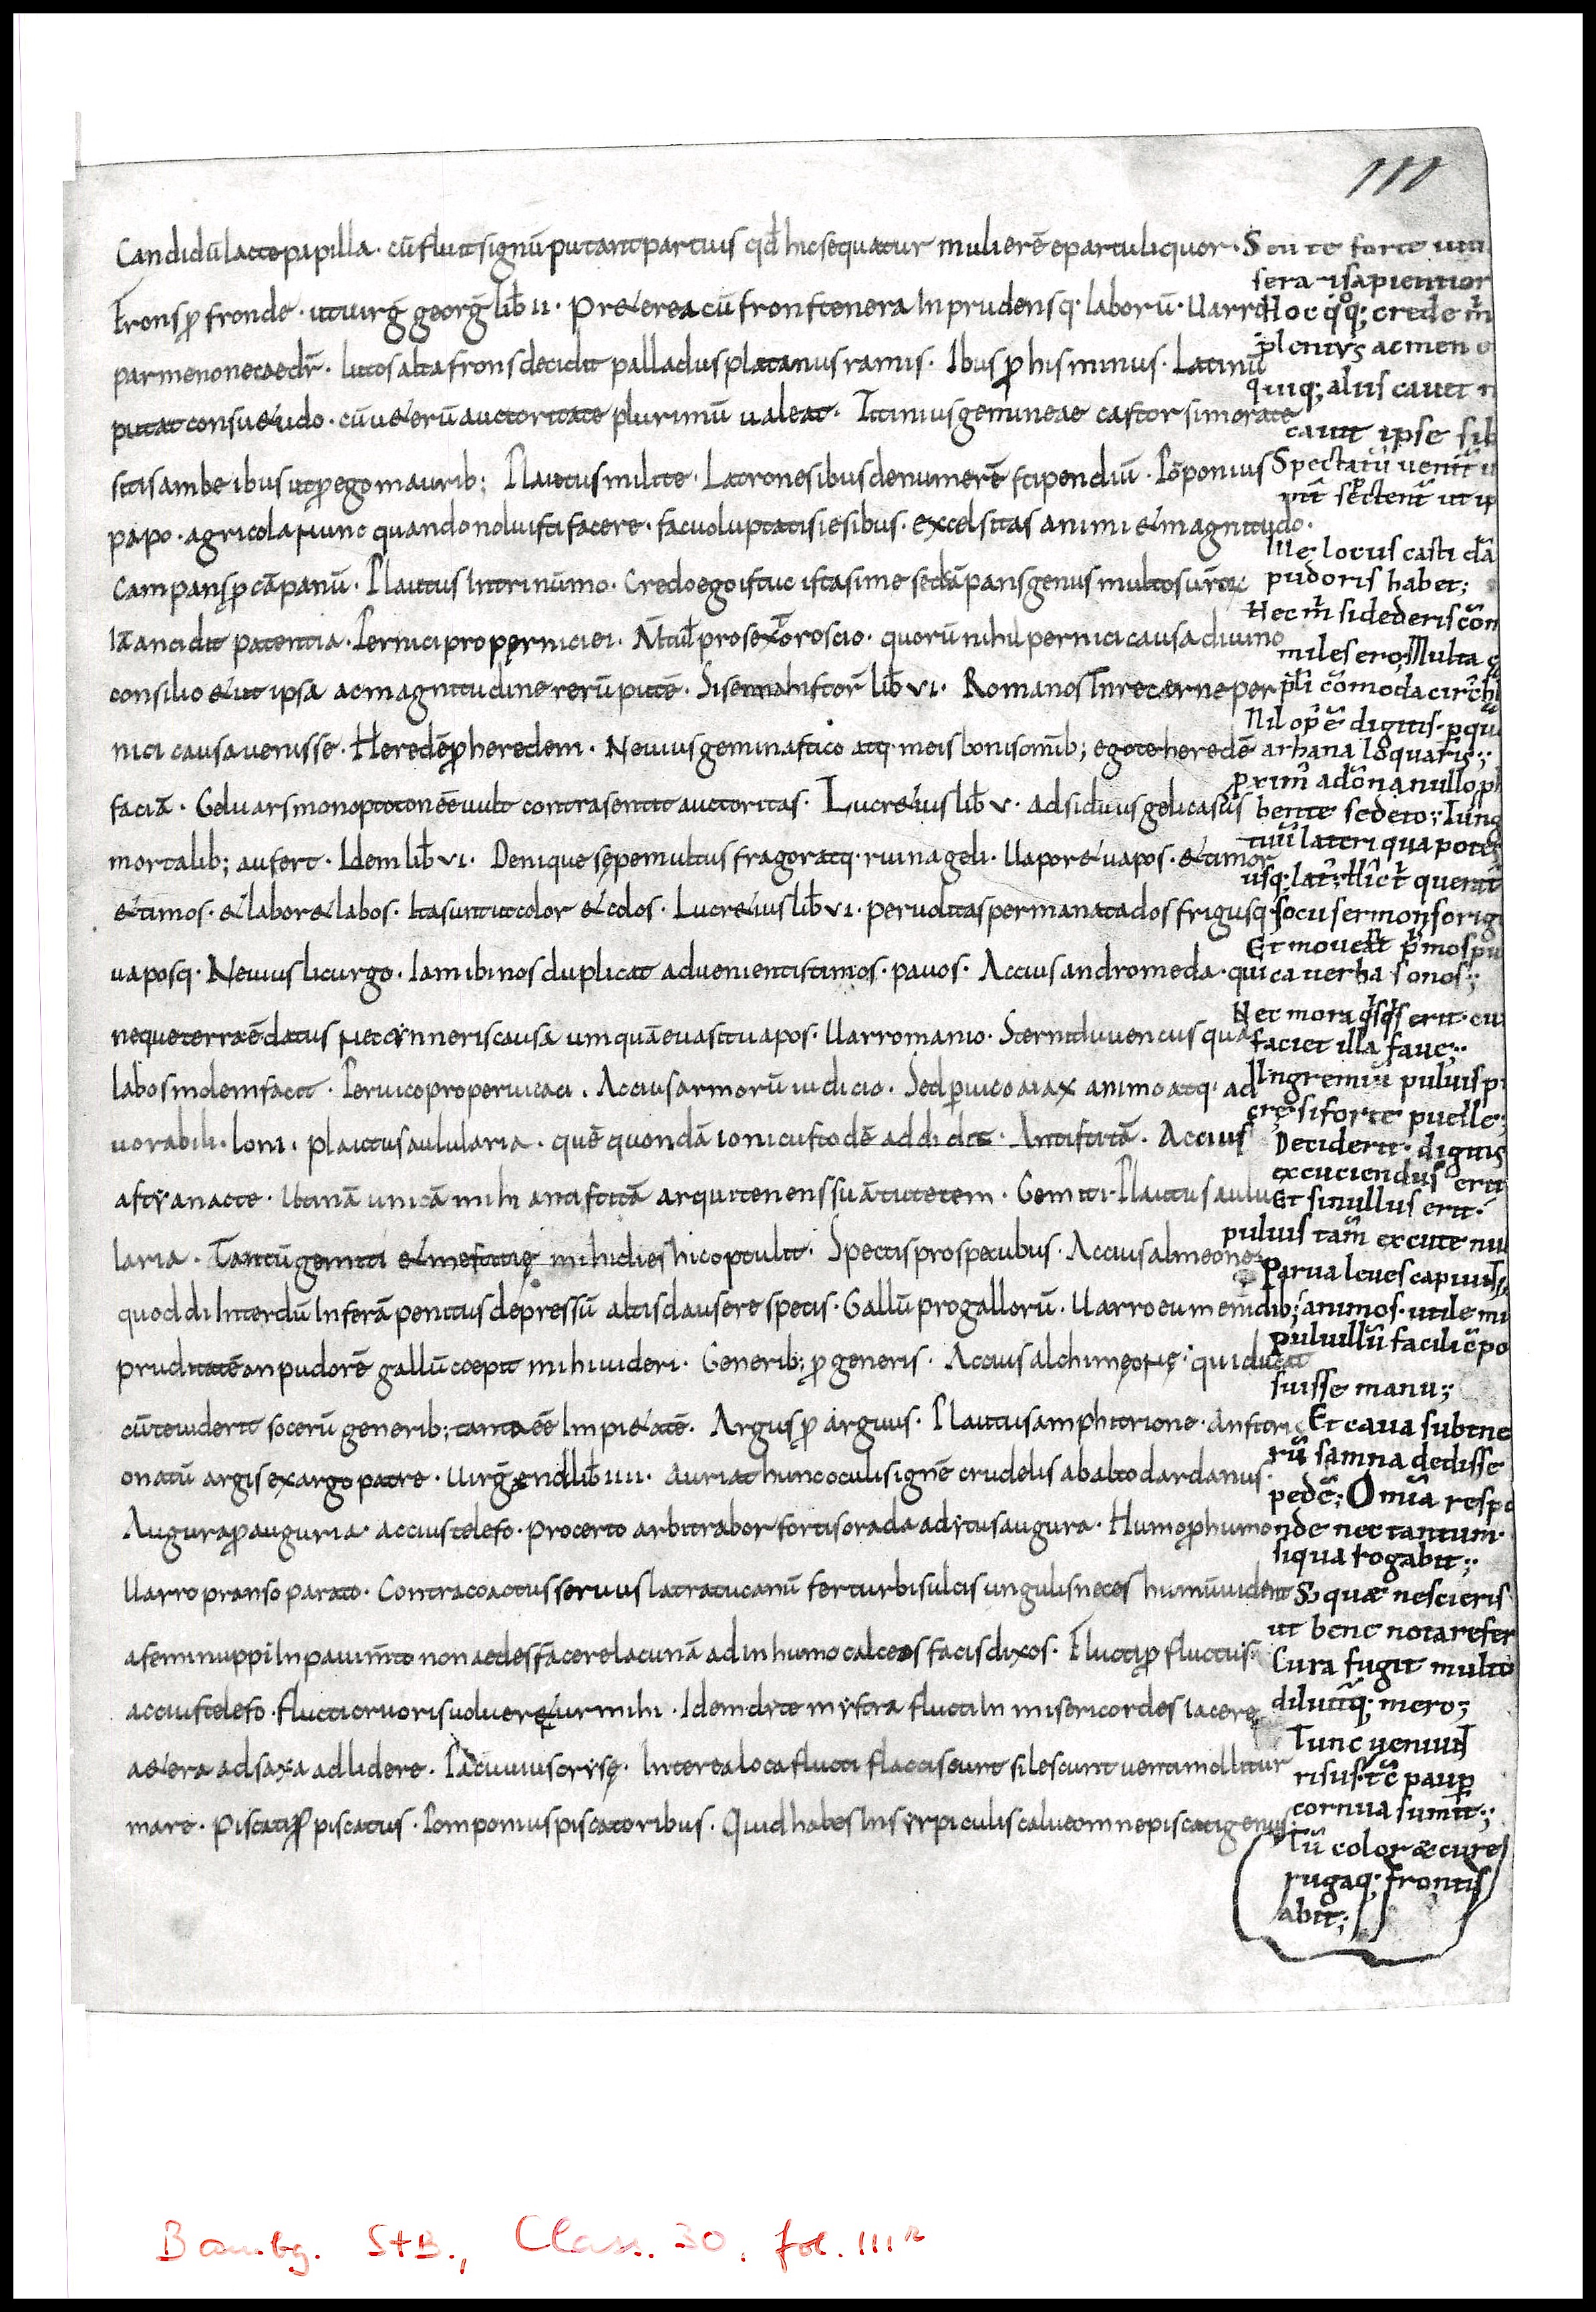 111
Candidū lacte papilla · cū fluit signū putant partuis qđ hic sequatur mulierē e partu liquor ·
Frons ꝓ fronde · ut uirḡ georḡ lib̄ II · Pretereа cū frons tenera Inprudensq· laborū · Uarro
parmenone caedr̄ · lucos alta frons decidit palladus platanus ramis · Ibus ꝓ his minus · Latinū
putat consuetudo · cū ueterū auctoritate plurimū ualeat · Titinius gemineae castor si morate
scis ambe ibus ut ꝓ ego maurib; Plautus milite · Latrones ibus denumerē stipendiū · Pōponius
papo · agricola Nunc quando noluisti facere · fac uoluptatis ies ibus · excelsitas animi et magnitudo ·
Campans ꝓ cāpanū · Plautus In trinūmo · Credo ego istuc
lā ancidit patentia · Pernici pro perniciei · M̄ tul̄ pro sex̄ roscio · quorū nihil pernici causa diuino
consilio et ut ipsa ac magnitudine rerū putē · Sisenna histor̄ lib̄ VI · Romanos Inrecerne per
nici causa uenisse · Heredē ꝓ heredem · Neuius gemin astico atq· meis bonis omīb; ego te heredē
faciā · Gelu ars monoptoton eē uult contra sentit auctoritas · Lucretius lib̄ V · adsiduus geli casus
mortalib; aufert · Idem lib̄ VI · Denique sępe multus fragor atq· ruina geli · Uapor et uapos · et timor
et timos · et labor et labos · Ita sunt ut color et colos · Lucretius lib̄ VI · per uolitas permanat ados frigusq·
uaposq· Neuius licurgo · Iam ibi nos duplicat aduenientis timos · pauos · Accius andromeda · qui
neque terra ē datus nec cynneris causā umquā euasit uapos · Uarro manio · Sternit iuuencus qua
labos indem facit · Peruico pro peruicaci · Accius armorū iudicio · Sed ꝑuico aiax animo atq· ad
uorabili · Ioni · plautus aulularia · quē quondā ioni custodē addidit · Antistitā · Accius
astyanacte · Utinā unicā mihi antistitā arquitenens suā tutetem · Gemiti · Plautus aulu
laria · Tantū gemiti et mestitię mihi dies hic optulit · Spectis pro specubus · Accius almeone
quod di Interdū Inferā penitus depressū altis clausere specis · Gallū pro gallorū · Uarro eumenidib;
pruditatē an pudorē gallū coepit mihi uideri · Generib; ꝓ generis · Accius alchimęonę · qui ducat
cū te uiderit socerū generib; tanta eē Impietatē · Argus ꝓ arguus · Plautus amphitrione · Anfitri
onatū argis ex argo patre · Uirḡ aend lib̄ IIII · Auriat hunc oculis ignē crudelis ab alto dardanus ·
Augura ꝓ auguria · accius telefo · pro certo arbitrabor fortis orada adytus augura · Humo ꝓ humo
Uarro pranso parato · Contra coactus seruus latratu canū fertur bisulcis ungulis neces humū uident
a feminuppi In pauim̄to non aedes facere lacunā ad in humo calceos facis dixos · Flucti ꝓ fluctus ·
accius telefo · flucti cruoris uoluerętur mihi · Idem dyte mystra flucti In misericordes iacere
aetera ad saxa adlidere · Pacuuius crysę · Interea loca flucti flacciscunt silescunt uenti mollitur
mare · Piscati ꝓ piscatus · Pomponius piscatoribus · Quid habes In syrpiculis calueomne piscati genus ·
Seu te forte
sera sapientior
Hoc q̇sq; crede m̄
quiq; aliis cauit
cauit ipse sib
Spectatū uenit̄
Ille locus casti dā
pudoris habet;
Hec m̄ si dederis cōm
miles ero; Multa
commoda circ̄
Nil op̄ ē digitis · p̄ q̄
arhana loquaris;
ꝓxim̄ adōna nullo ph
bente sedeto; Iung
tuū lateri qua potes
usq; lat̄; Hic t̄ querat̄
socii sermonis orig
Et moueat p̄mos pu
ca uerba sonos;
Nec mora q̇sq̇s erit · cu
faciet illa faue;
In gremiū puluis
si forte puelle;
Deciderit · digitis
excuciendus erit
Et si nullus erit ·
puluis tam̄ excute nul
Parua leues capiu
animos · utile
puluillū facili c̄po
suisse manu;
Et caua sub tene
rū samna dedisse
pedē; Omīa respo
nde nec tantum ·
siqua rogabit;
Et quae nescieris
ut bene nota refer
Cura fugit multo
diluitq̄; mero;
Tunc ueniu
risus · tc̄ paup̄
cornua sumit̄;
Tū color æ cure
rugaq; frontis
abit;
Bambg. StB., Class. 30, fol. 111r